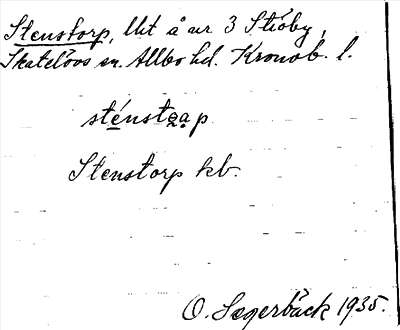 Stenstorp, lht å nr 3 Stioby,
Skatelövs sn. Allbo hd. Kronob. l.
sténstɑp
Stenstorp kb.
O. Segerbäck 1935.